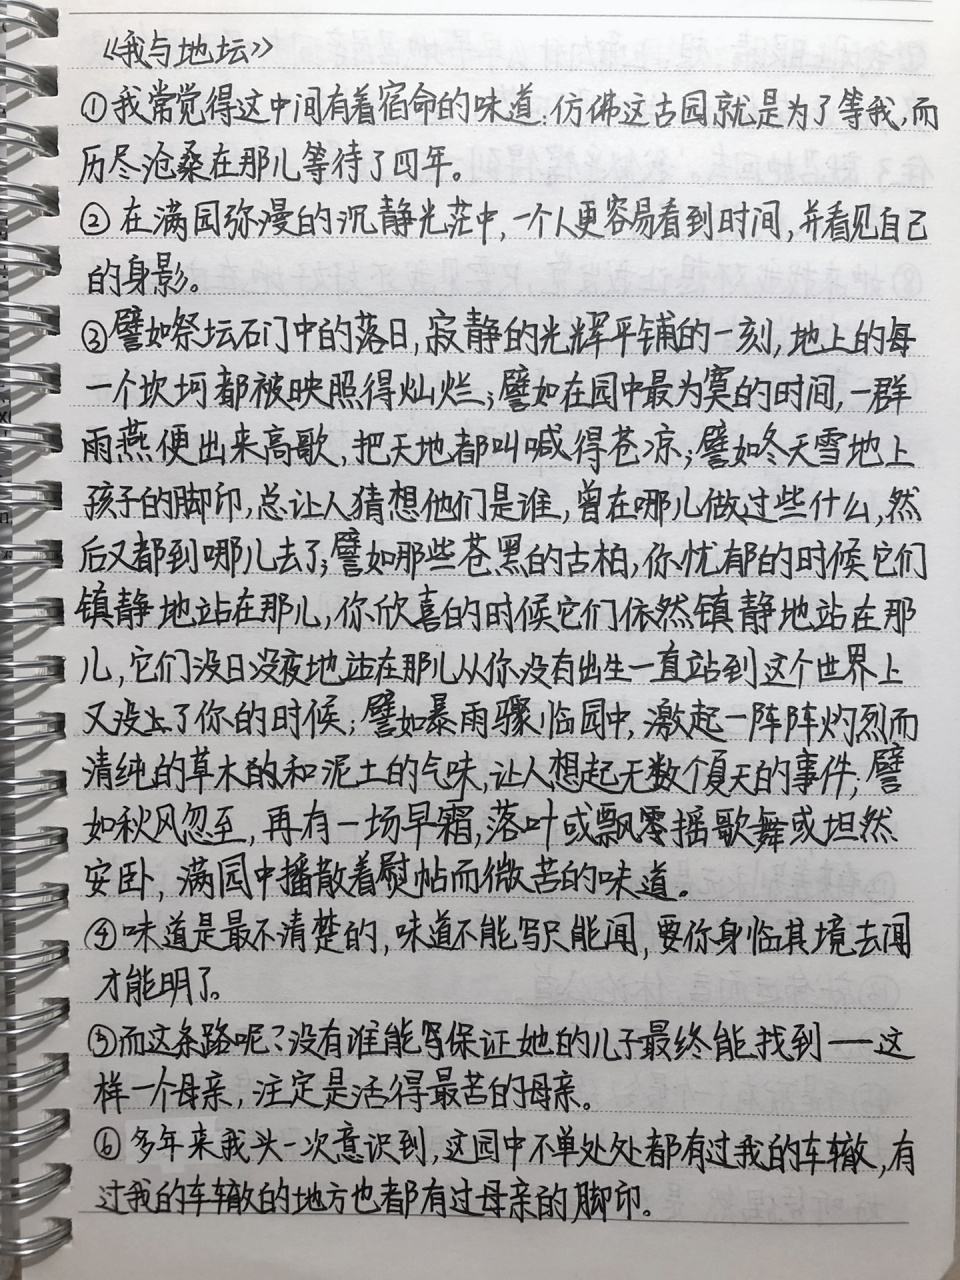 《我与地坛》
①我常觉得这中间有着宿命的味道:仿佛这古园就是为了等我,而
历尽沧桑在那儿等待了四年。
②在满园弥漫的沉静光茫中,一个人更容易看到时间,并看见自己
的身影。
③譬如祭坛石门中的落日,寂静的光辉平铺的一刻,地上的每
一个坎坷都被映照得灿烂;譬如在园中最为寞的时间,一群
雨燕便出来高歌,把天地都叫喊得苍凉;譬如冬天雪地上
孩子的脚印,总让人猜想他们是谁,曾在哪儿做过些什么,然
后又都到哪儿去了;譬如那些苍黑的古柏,你忧郁的时候它们
镇静地站在那儿,你欣喜的时候它们依然镇静地站在那
儿,它们没日没夜地站在那儿从你没有出生一直站到这个世界上
又没了你的时候;譬如暴雨骤临园中,激起一阵阵灼烈而
清纯的草木的和泥土的气味,让人想起无数个夏天的事件;譬
如秋风忽至,再有一场早霜,落叶或飘零摇歌舞或坦然
安卧,满园中播散着熨帖而微苦的味道。
④味道是最不清楚的,味道不能写只能闻,要你身临其境去闻
才能明了。
⑤而这条路呢?没有谁能保证她的儿子最终能找到——这
样一个母亲,注定是活得最苦的母亲。
⑥多年来我头一次意识到,这园中不单处处都有过我的车辙,有
过我的车辙的地方也都有过母亲的脚印。